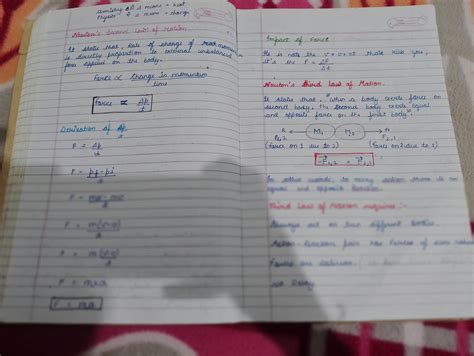 Newton's Second Law of Motion
It state that, Rate of change of
is directly proportion to external unbalanced
force applied on the body.
Force ∝ Change in momentum
time
Force ∝ Δp
t
Derivation of Δp
t
F = Δp
t
F = pf - pi
t
F = mv - mu
t
F = m(v-u)
t
F = m(v-u)
t
F = m×a
F = ma
Impact of Force
It is not the that kills you,
it's the F = Δp
Δt
Newton's third law of Motion.
It state that, "when a body exerts force on
second body, the second body exerts equal
and opposite force on the first body"
F1,2 M1 M2 F2,1
(Force on 1 due to 2) (Force on 2 due to 1)
F1,2 = F2,1
In other words, to every action there is an
equal and opposite Reaction.
Third Law of Motion requires:-
Always act on two different bodies.
Action-Reaction pair has Forces of same nature
Forces are